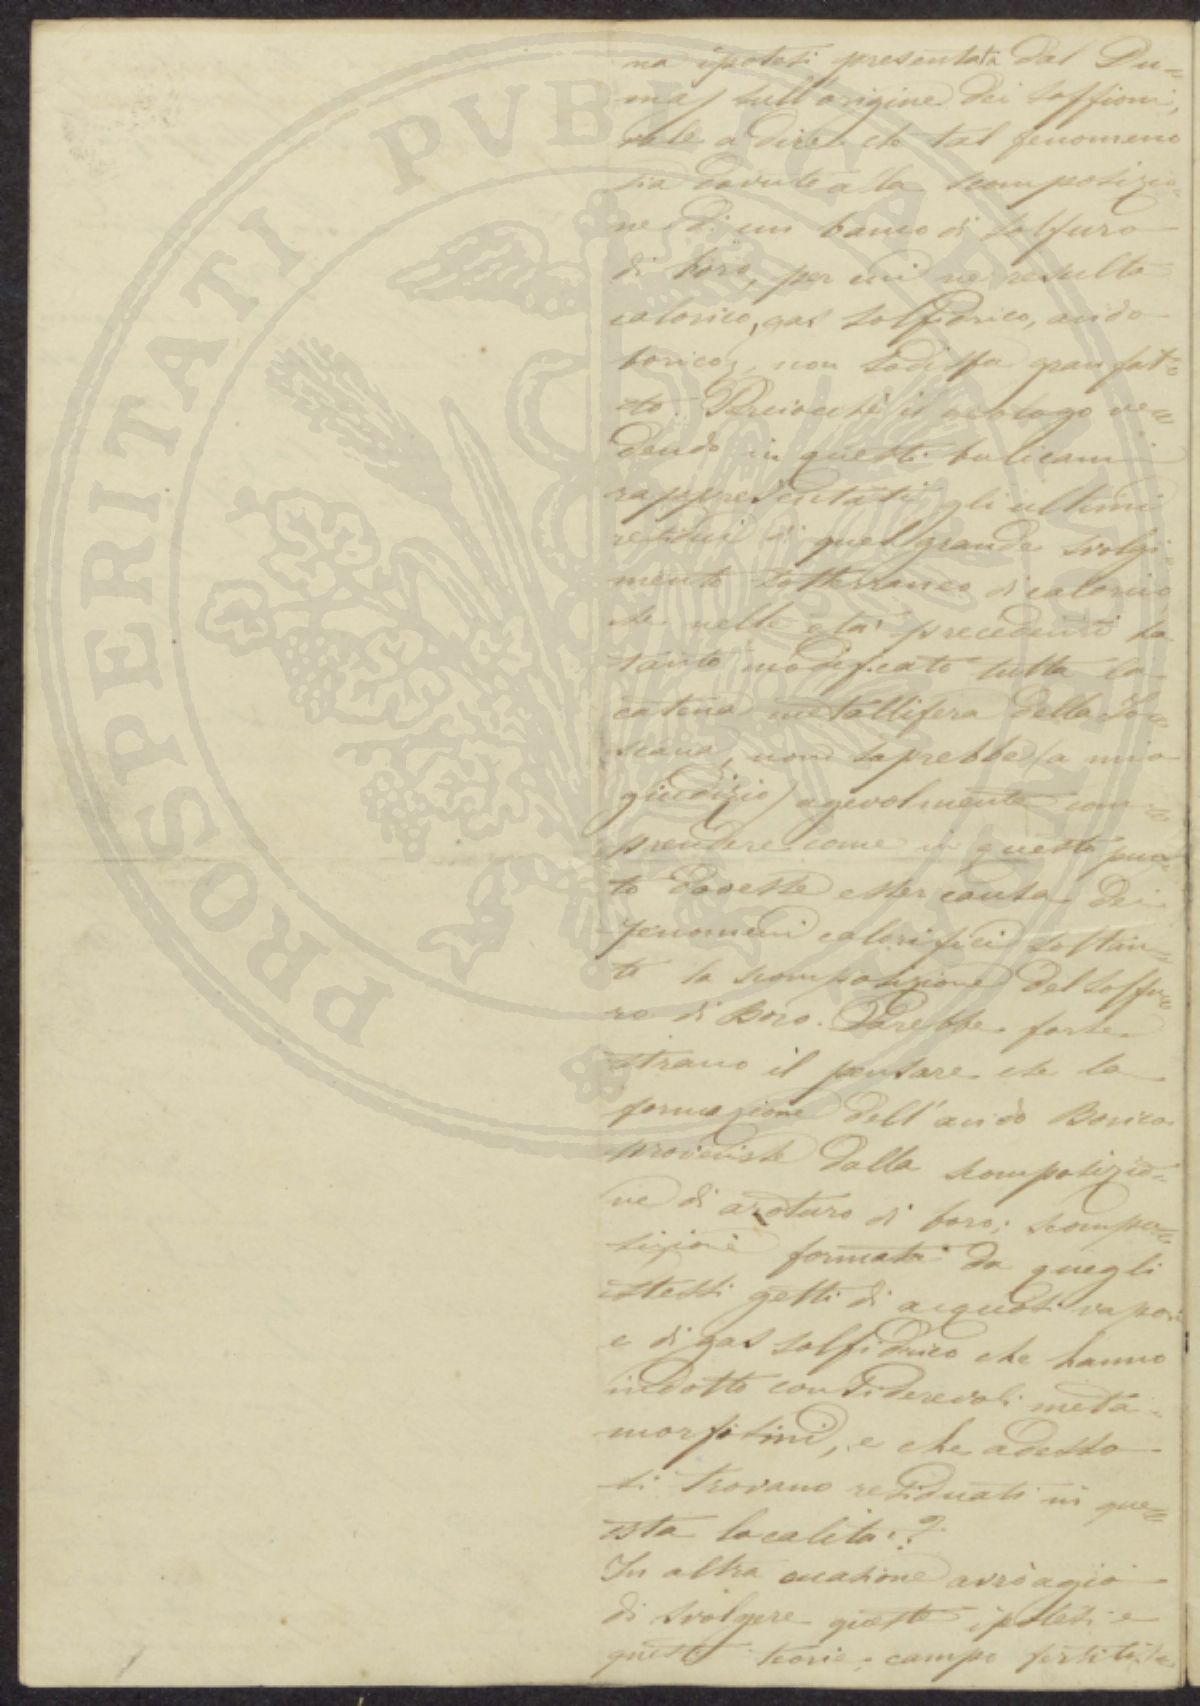 na ipotesi presentata dal Du=
mas sull'origine dei soffioni,
vale a dire che tal fenomeno
sia dovuto alla scomposizio=
ne di un banco di solfuro
di boro, per cui ne resulta
calorico, gas solfidrico, acido
borico, non sodisfa gran fat=
to. Perciocchè il geologo ve=
dendo in questi bulicami
rappresentati gli ultimi
residui di quel grande svolgi
mento sotterraneo di calorico,
che nelle età precedenti ha
tanto modificato tutta la
catena metallifera della To=
scana, non saprebbe (a mio
giudizio) agevolmente com=
prendere come in questo pun=
to dovesse esser causa dei
fenomeni calorifici soltan=
to la scomposizione del solfu=
ro di Boro. Sarebbe forse
strano il pensare che la
formazione dell'acido Borico
provenisse dalla scomposizio=
ne di azoturo di boro; scompo=
sizione formata da quegli
stessi getti di acquosi vapori
e di gas solfidrico che hanno
indotto considerevoli meta=
morfismi, e che adesso
si trovano residuati in que=
sta località?
In altra occasione avrò agio
di svolgere queste ipotesi e
queste teorie; campo
PROSPERITATI PVBLICAE